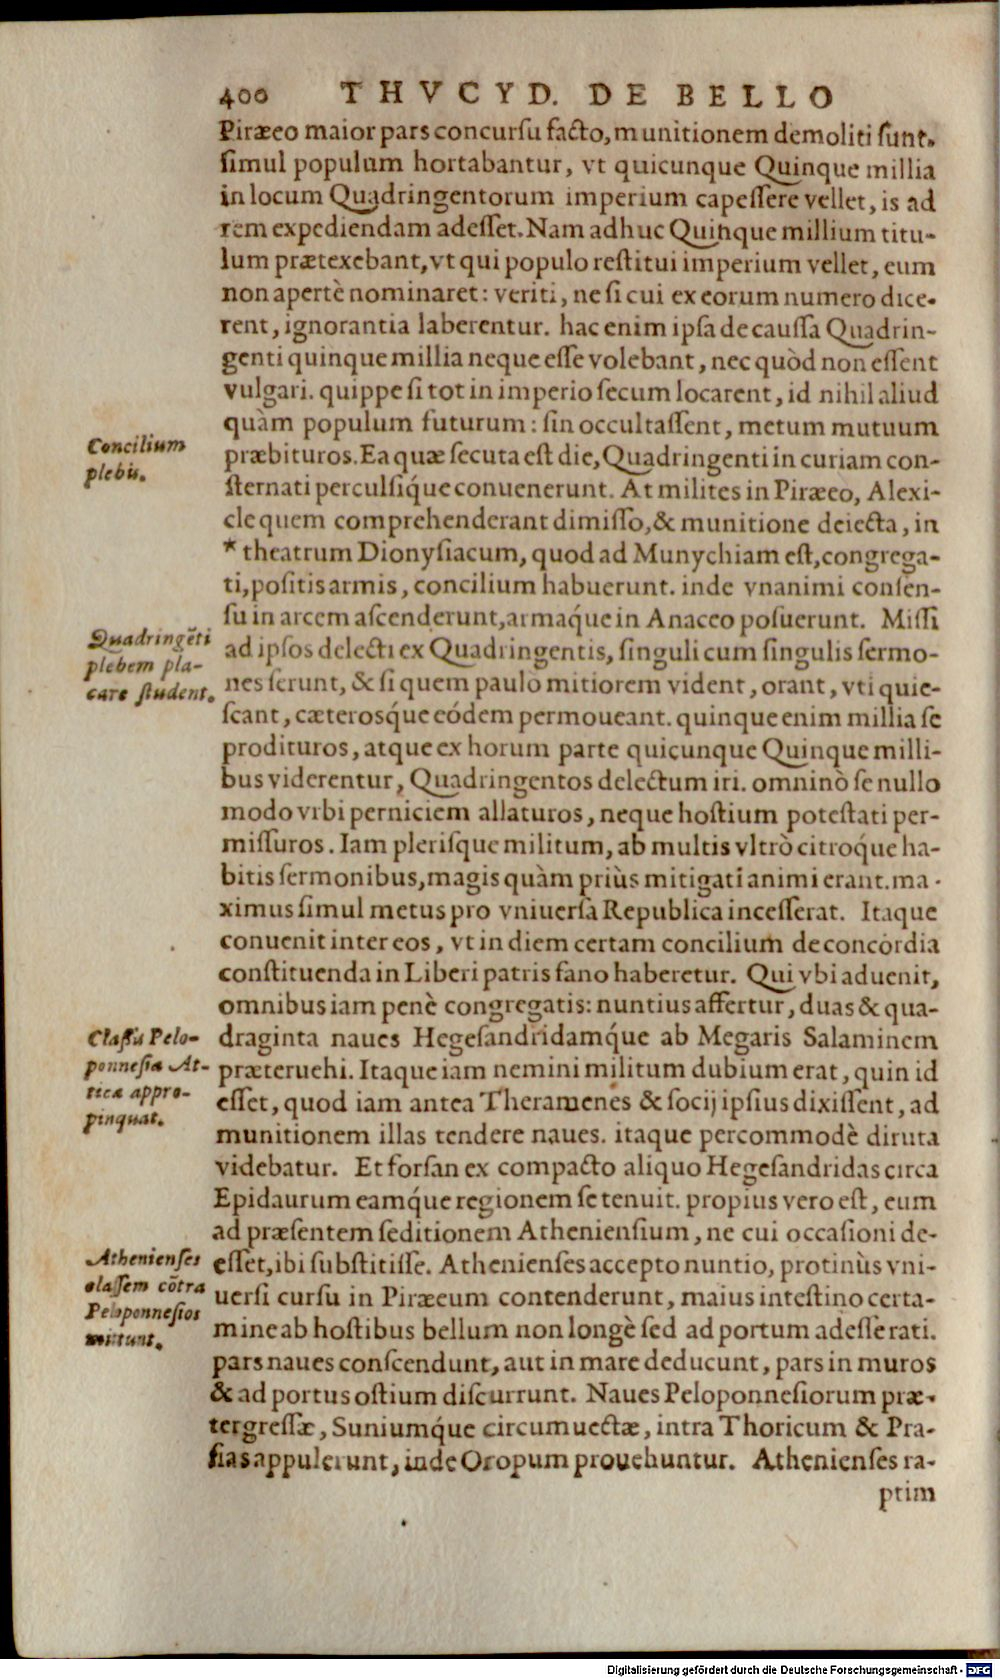 400 THVCYD. DE BELLO
Piræeo maior pars concursu facto, munitionem demoliti sunt.
simul populum hortabantur, vt quicunque Quinque millia
in locum Quadringentorum imperium capessere vellet, is ad
rem expediendam adesset. Nam adhuc Quinque millium titu-
lum prætexebant, vt qui populo restitui imperium vellet, eum
non apertè nominaret: veriti, ne si cui ex eorum numero dice-
rent, ignorantia laberentur. hac enim ipsa de caussa Quadrin-
genti quinque millia neque esse volebant, nec quòd non essent
vulgari. quippe si tot in imperio secum locarent, id nihil aliud
quàm populum futurum: sin occultassent, metum mutuum
Concilium
plebis.
præbituros. Ea quæ secuta est die, Quadringenti in curiam con-
sternati perculsiq́ue conuenerunt. At milites in Piræeo, Alexi-
cle quem comprehenderant dimisso, & munitione deiecta, in
* theatrum Dionysiacum, quod ad Munychiam est, congrega-
ti, positis armis, concilium habuerunt. inde vnanimi consen-
su in arcem ascenderunt, armaq́ue in Anaceo posuerunt. Missi
Quadringẽti
plebem pla-
care student.
ad ipsos delecti ex Quadringentis, singuli cum singulis sermo-
nes serunt, & si quem paulò mitiorem vident, orant, vti quie-
scant, cæterosq́ue eódem permoueant. quinque enim millia se
prodituros, atque ex horum parte quicunque Quinque milli-
bus viderentur, Quadringentos delectum iri. omninò se nullo
modo vrbi perniciem allaturos, neque hostium potestati per-
missuros. Iam plerisque militum, ab multis vltrò citroq́ue ha-
bitis sermonibus, magis quàm priùs mitigati animi erant. ma-
ximus simul metus pro vniuersa Republica incesserat. Itaque
conuenit inter eos, vt in diem certam concilium de concordia
constituenda in Liberi patris fano haberetur. Qui vbi aduenit,
omnibus iam penè congregatis: nuntius affertur, duas & qua-
Classis Pelo-
ponnesia At-
ticæ appro-
pinquat.
draginta naues Hegesandridamq́ue ab Megaris Salaminem
præteruehi. Itaque iam nemini militum dubium erat, quin id
esset, quod iam antea Theramenes & socij ipsius dixissent, ad
munitionem illas tendere naues. itaque percommodè diruta
videbatur. Et forsan ex compacto aliquo Hegesandridas circa
Epidaurum eamq́ue regionem se tenuit. propius vero est, eum
ad præsentem seditionem Atheniensium, ne cui occasioni de-
Athenienses
classem cõtra
Peloponnesios
mittunt.
esset, ibi substitisse. Athenienses accepto nuntio, protinùs vni-
uersi cursu in Piræeum contenderunt, maius intestino certa-
mine ab hostibus bellum non longè sed ad portum adesse rati.
pars naues conscendunt, aut in mare deducunt, pars in muros
& ad portus ostium discurrunt. Naues Peloponnesiorum præ-
tergressæ, Suniumq́ue circumuectæ, intra Thoricum & Pra-
sias appulerunt, inde Oropum prouehuntur. Athenienses ra-
ptim
Digitalisierung gefördert durch die Deutsche Forschungsgemeinschaft - DFG